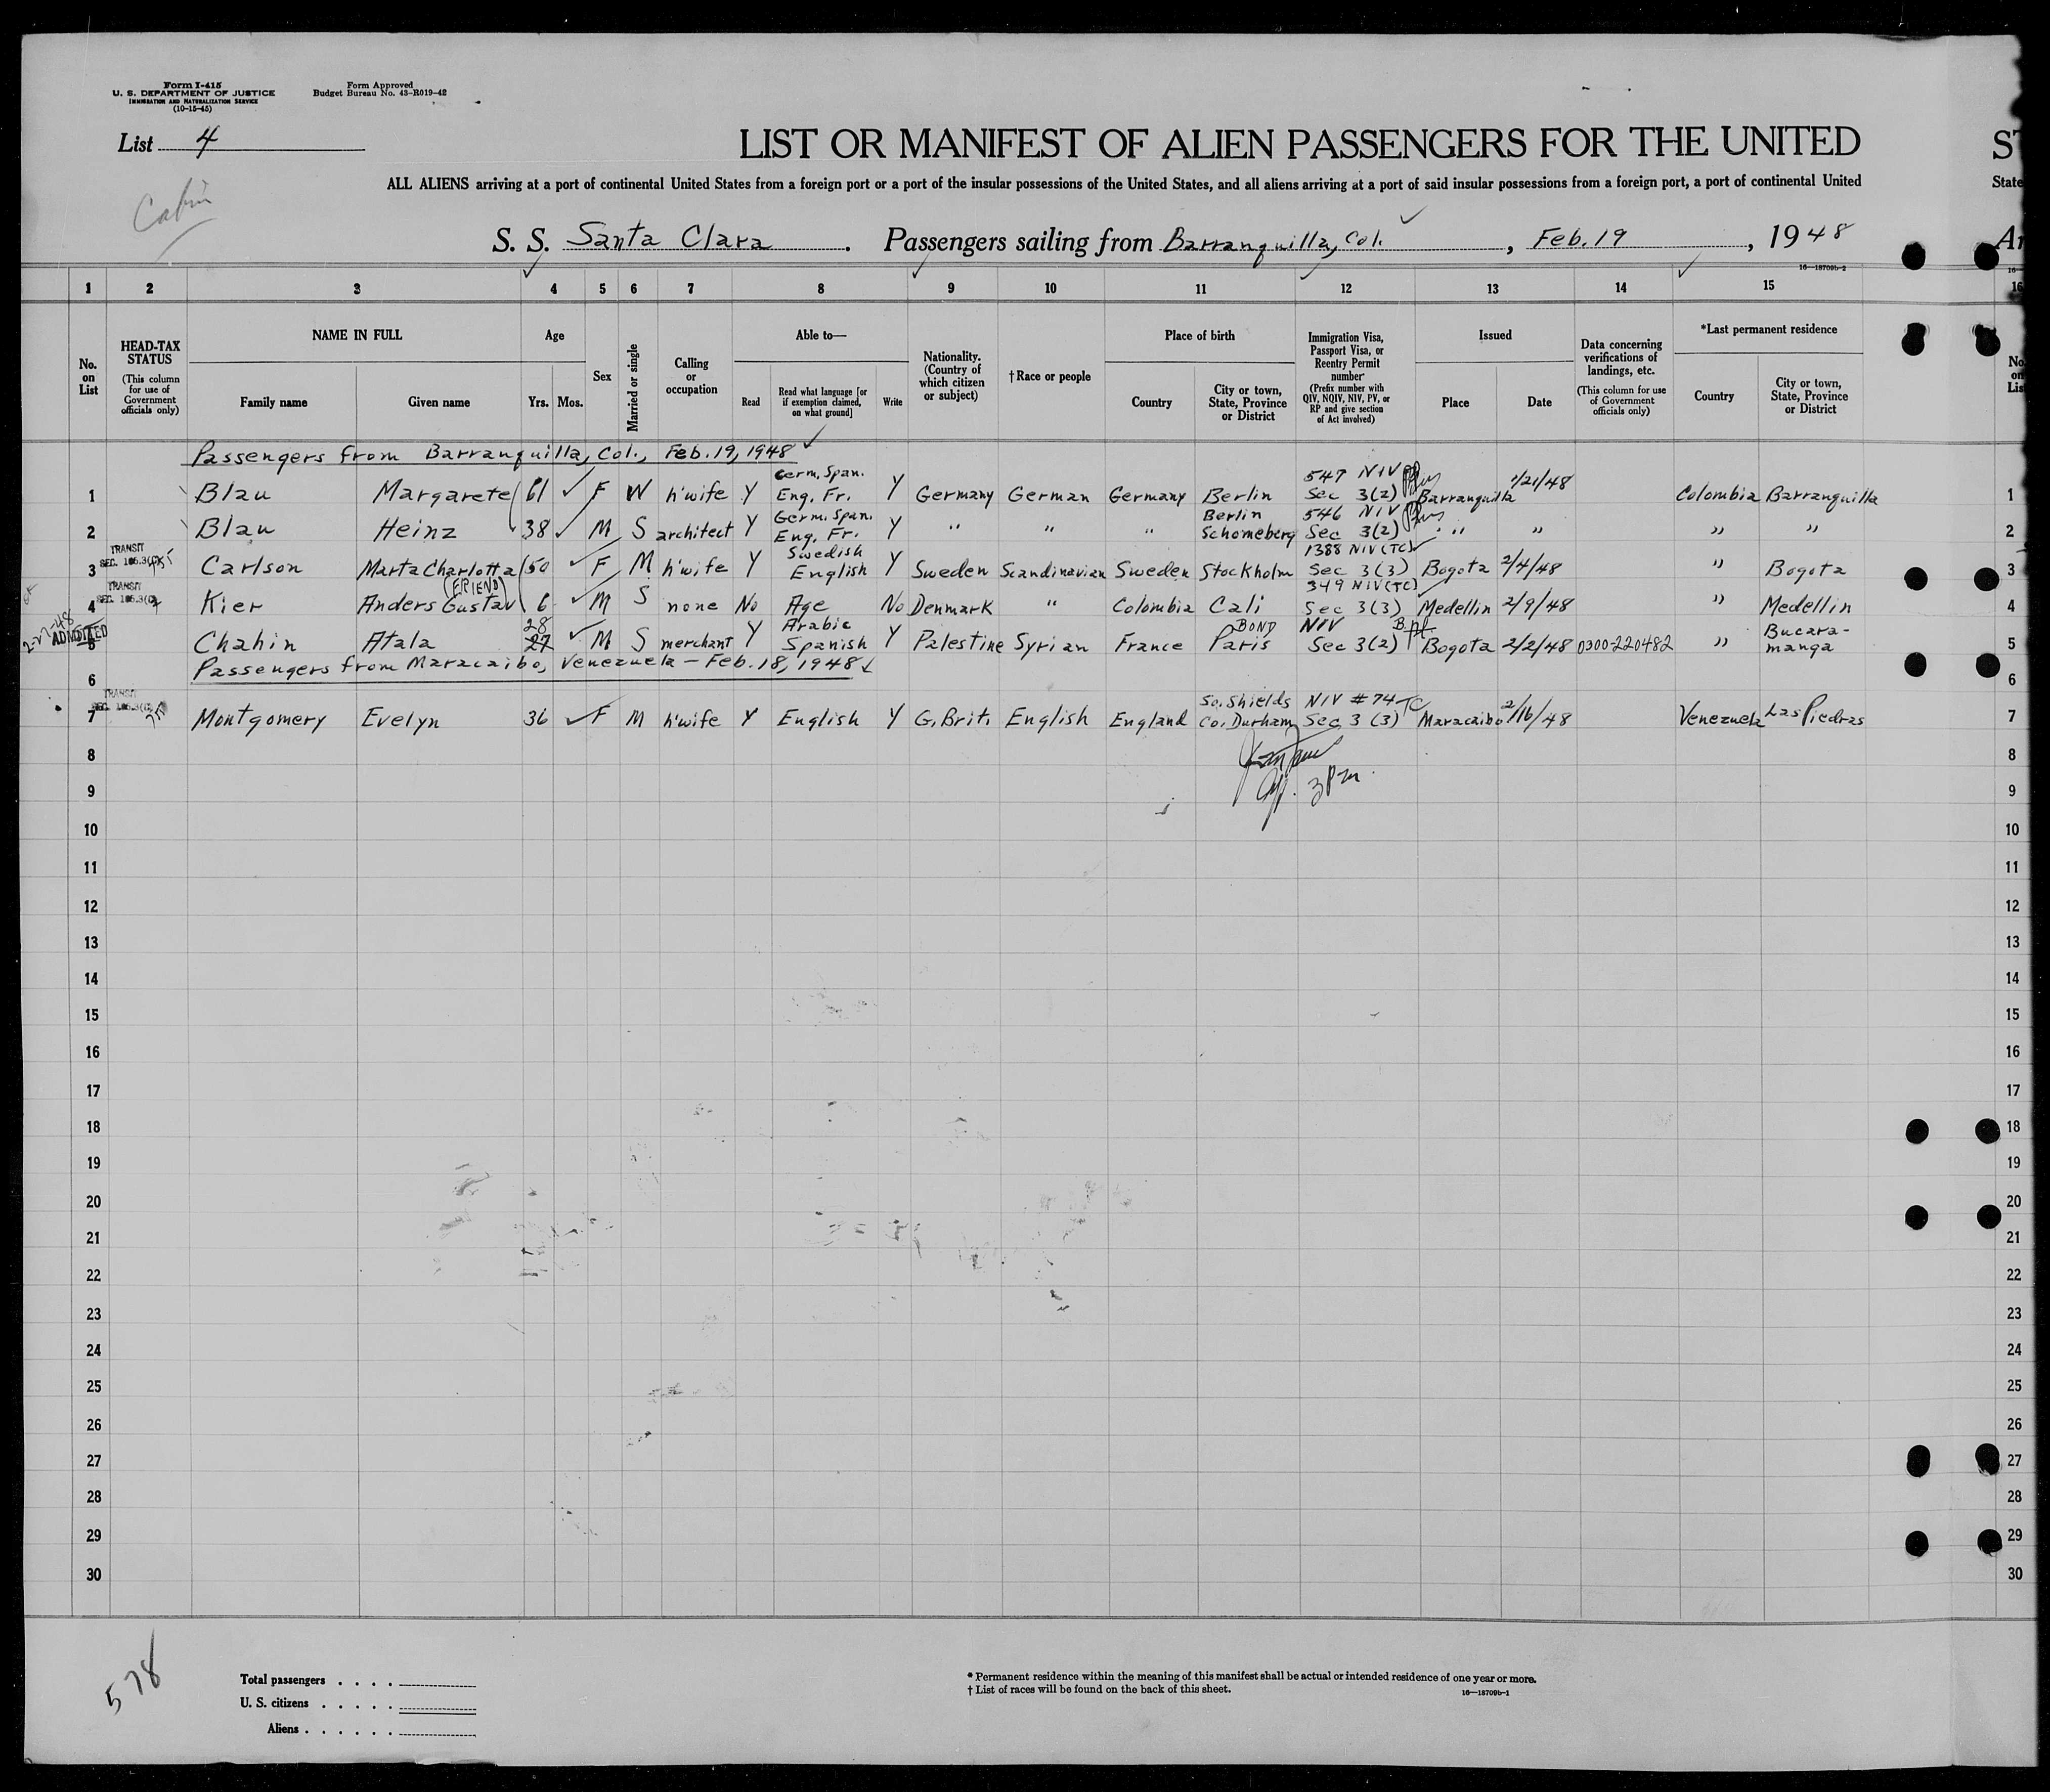 Form I-415
U. S. DEPARTMENT OF JUSTICE
IMMIGRATION AND NATURALIZATION SERVICE
(10-15-45)
Form Approved
Budget Bureau No. 43-R019-42
List 4
Cabin
LIST OR MANIFEST OF ALIEN PASSENGERS FOR THE UNITED
ST
ALL ALIENS arriving at a port of continental United States from a foreign port or a port of the insular possessions of the United States, and all aliens arriving at a port of said insular possessions from a foreign port, a port of continental United
State
S. S. Santa Clara . Passengers sailing from Barranquilla, Col. , Feb. 19 , 1948
16—18709b-2
1 2 3 4 5 6 7 8 9 10 11 12 13 14 15 16
No. on List
HEAD-TAX STATUS
(This column for use of Government officials only)
NAME IN FULL
Family name Given name
Age
Yrs. Mos.
Sex
Married or single
Calling or occupation
Able to—
Read
Read what language [or if exemption claimed, on what ground]
Write
Nationality. (Country of which citizen or subject)
†Race or people
Place of birth
Country
City or town, State, Province or District
Immigration Visa, Passport Visa, or Reentry Permit number
(Prefix number with QIV, NQIV, NIV, PV, or RP and give section of Act involved)
Issued
Place Date
Data concerning verifications of landings, etc.
(This column for use of Government officials only)
*Last permanent residence
Country
City or town, State, Province or District
No. on List
Passengers from Barranquilla, Col., Feb. 19, 1948
1 Blau Margarete 61 F W h'wife Y Germ. Span. Eng. Fr. Y Germany German Germany Berlin 547 NIV Sec 3(2) Barranquilla 1/21/48 Colombia Barranquilla 1
2 Blau Heinz 38 M S architect Y Germ. Span. Eng. Fr. Y " " " Berlin Schomeberg 546 NIV Sec 3(2) " " " " " 2
TRANSIT
3 Carlson Marta Charlotta 50 F M h'wife Y Swedish English Y Sweden Scandinavian Sweden Stockholm 1388 NIV (TC) Sec 3(3) Bogota 2/4/48 " Bogota 3
TRANSIT
4 Kier Anders Gustav (FRIEND) 6 M S none No Age No Denmark " Colombia Cali 349 NIV (TC) Sec 3(3) Medellin 2/9/48 " Medellin 4
2-27-48
ADMITTED
5 Chahin Atala 28 27 M S merchant Y Arabic Spanish Y Palestine Syrian France Paris BOND NIV Sec 3(2) Bogota 2/2/48 0300-220482 " Bucara-manga 5
6 Passengers from Maracaibo, Venezuela — Feb. 18, 1948 6
TRANSIT
7 Montgomery Evelyn 36 F M h'wife Y English Y G. Brit. English England So. Shields Co. Durham NIV # 74 TC Sec 3 (3) Maracaibo 2/16/48 Venezuela Las Piedras 7
8 8
9 3 Pm. 9
10 10
11 11
12 12
13 13
14 14
15 15
16 16
17 17
18 18
19 19
20 20
21 21
22 22
23 23
24 24
25 25
26 26
27 27
28 28
29 29
30 30
578
Total passengers . . . .
U. S. citizens . . . . .
Aliens . . . . . .
* Permanent residence within the meaning of this manifest shall be actual or intended residence of one year or more.
† List of races will be found on the back of this sheet.
16—18709b-1